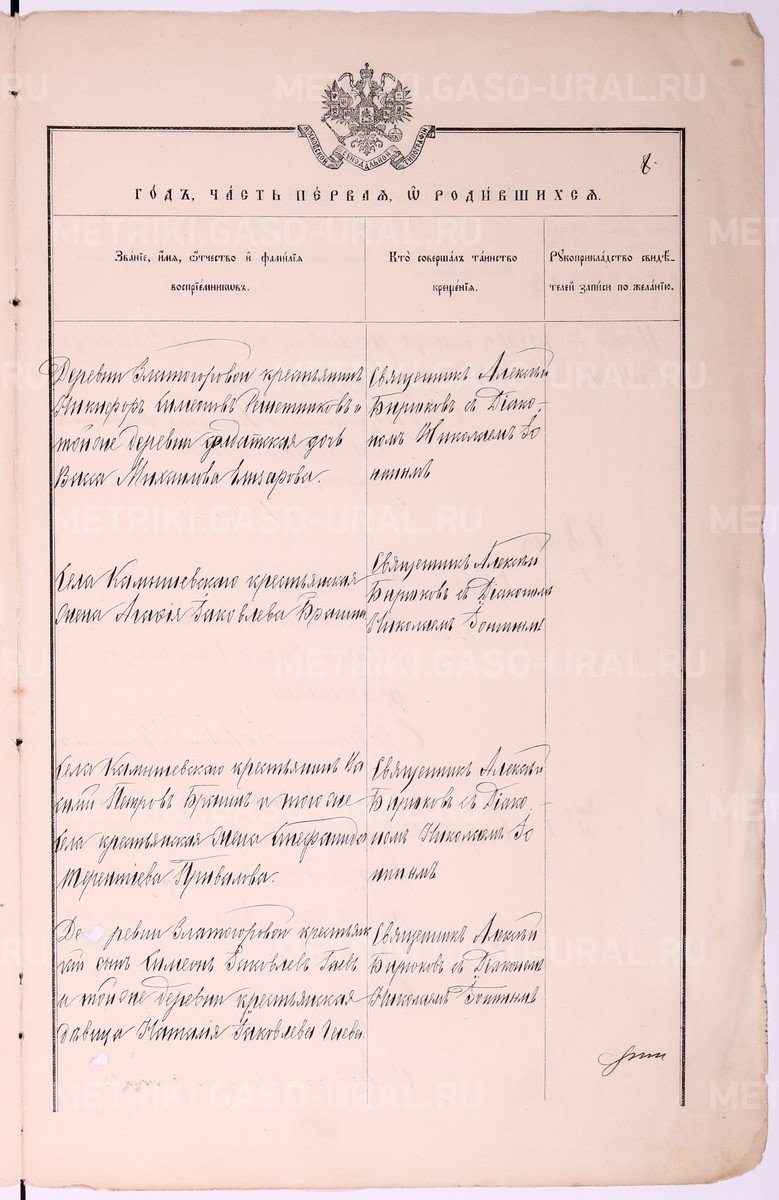 METRIKI.GASO-URAL.RU
МОСКОВСКОЙ СѴНОДАЛЬНОЙ ТИПОГРАФІИ
8
ГО́ДЪ, ЧА́СТЬ ПЕ́РВАЯ, Ѽ РОДИ́ВШИХСЯ.
Зва́нїе, и́мя, ѻ҆́тчество и҆ фами́лїя
воспрїе́мниковъ.
Кто̀ соверша́лъ та́инство
креще́нїя.
Рꙋкоприкла́дство свидѣ́-
телей за́писи по жела́нїю.
Деревни Златогоровой крестьянинъ
Никифоръ Симеоновъ Решетниковъ и
той же деревни солдатская дочь
Васса Михаилова
Священникъ Алексѣй
Бирюковъ съ Діако-
номъ Николаемъ Іо
нинымъ
Села Камышевскаго крестьянская
жена Агафія Іаковлева
Священникъ Алексѣй
Бирюковъ съ Діакономъ
Николаемъ Іонинымъ
Села Камышевскаго крестьянинъ
Петровъ и того же
села крестьянская жена Стефанида
Терентіева Привалова.
Священникъ Алексѣй
Бирюковъ съ Діако-
номъ Николаемъ Іо
нинымъ
Деревни Златогоровой крестьян
скій сынъ Симеонъ Іаковлевъ Гаевъ
и той же деревни крестьянская
дѣвица Наталія Іаковлева Гаева.
Священникъ Алексѣй
Бирюковъ съ Діакономъ
Николаемъ Іонинымъ